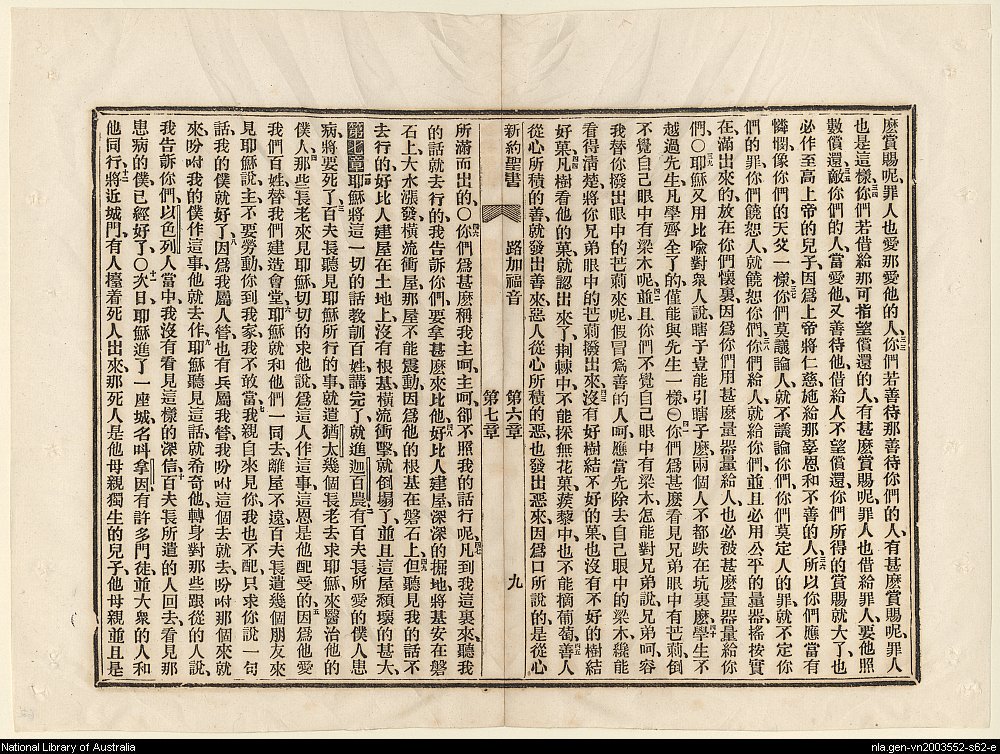 麽賞賜呢、罪人也愛那愛他的人、三三你們若善待那善待你們的人、有甚麽賞賜呢、罪人
也是這樣、三四你們若借給那可指望償還的人、有甚麽賞賜呢、罪人也借給罪人、要他照
數償還、三五敵你們的人當愛他、又善待他、借給人不望償還、你們所得的賞賜就大了、也
必作至高上帝的兒子、因爲上帝將仁慈施給那辜恩和不善的人、三六所以你們應當有
憐憫、像你們的天父一樣、三七你們莫議論人、就不議論你們、你們莫定人的罪、就不定你
們的罪、你們饒恕人、就饒恕你們、三八你們給人、就給你們、並且必用公平的量器、搖按實
在、滿出來的、放在你們懷裏、因爲你們用甚麽量器量給人、也必被甚麽量器量給你
們、〇三九耶穌又用比喩對衆人說、瞎子豈能引瞎子麽、兩個人不都跌在坑裏麽、四十學生不
越過先生、凡學齊全了的、僅能與先生一樣、〇四一你們爲甚麽看見兄弟眼中有芒莿、倒
不覺自己眼中有梁木呢、四二並且你們不覺自己眼中有梁木、怎能對兄弟說、兄弟呵、容
我替你撥出眼中的芒莿來呢、假冒爲善的人呵、應當先除去自己眼中的梁木、纔能
看得淸楚、將你兄弟眼中的芒莿撥出來、四三沒有好樹結不好的菓、也沒有不好的樹結
好菓、四四凡樹看他的菓、就認出來了、荆棘中不能採無花菓、蒺藜中也不能摘葡萄、四五善人
從心所積的善、就發出善來、惡人從心所積的惡、也發出惡來、因爲口所說的、是從心
新約聖書 路加福音 第六章 第七章 九
所滿而出的、〇四六你們爲甚麽稱我主呵、主呵、卻不照我的話行呢、四七凡到我這裏來、聽我
的話就去行的、我告訴你們、要拿甚麽來比他、四八好比人建屋、深深的掘地、將基安在磐
石上、大水漲發橫流衝屋、那屋不能震動、因爲他的根基在磐石上、四九但聽見我的話不
去行的、好比人建屋在土地上、沒有根基、橫流衝擊、就倒塌了、並且這屋頹壞的甚大、
第七章一耶穌將這一切的話、教訓百姓、講完了、就進迦百農、二有百夫長所愛的僕人患
病、將要死了、三百夫長聽見耶穌所行的事、就遣猶太幾個長老去求耶穌來醫治他的
僕人、四那些長老來見耶穌、切切的求他說、爲這人作這事、這恩是他配受的、五因爲他愛
我們百姓、替我們建造會堂、六耶穌就和他們一同去、離屋不遠、百夫長遣幾個朋友來
見耶穌說、主不要勞動你到我家、我不敢當、七我親自來見你、我也不配、只求你說一句
話、我的僕就好了、八因爲我屬人管、也有兵屬我管、我吩咐這個去就去、吩咐那個來就
來、吩咐我的僕作這事、他就去作、九耶穌聽見這話、就希奇他、轉身對那些跟從的人說、
我告訴你們、以色列人當中、我沒有看見這樣的深信、十百夫長所遣的人回去、看見那
患病的僕已經好了、〇十一次日、耶穌進了一座城、名叫拿因、有許多門徒並大衆的人和
他同行、十二將近城門、有人擡着死人出來、那死人是他母親獨生的兒子、他母親並且是
National Library of Australia
nla.gen-vn2003552-s62-e